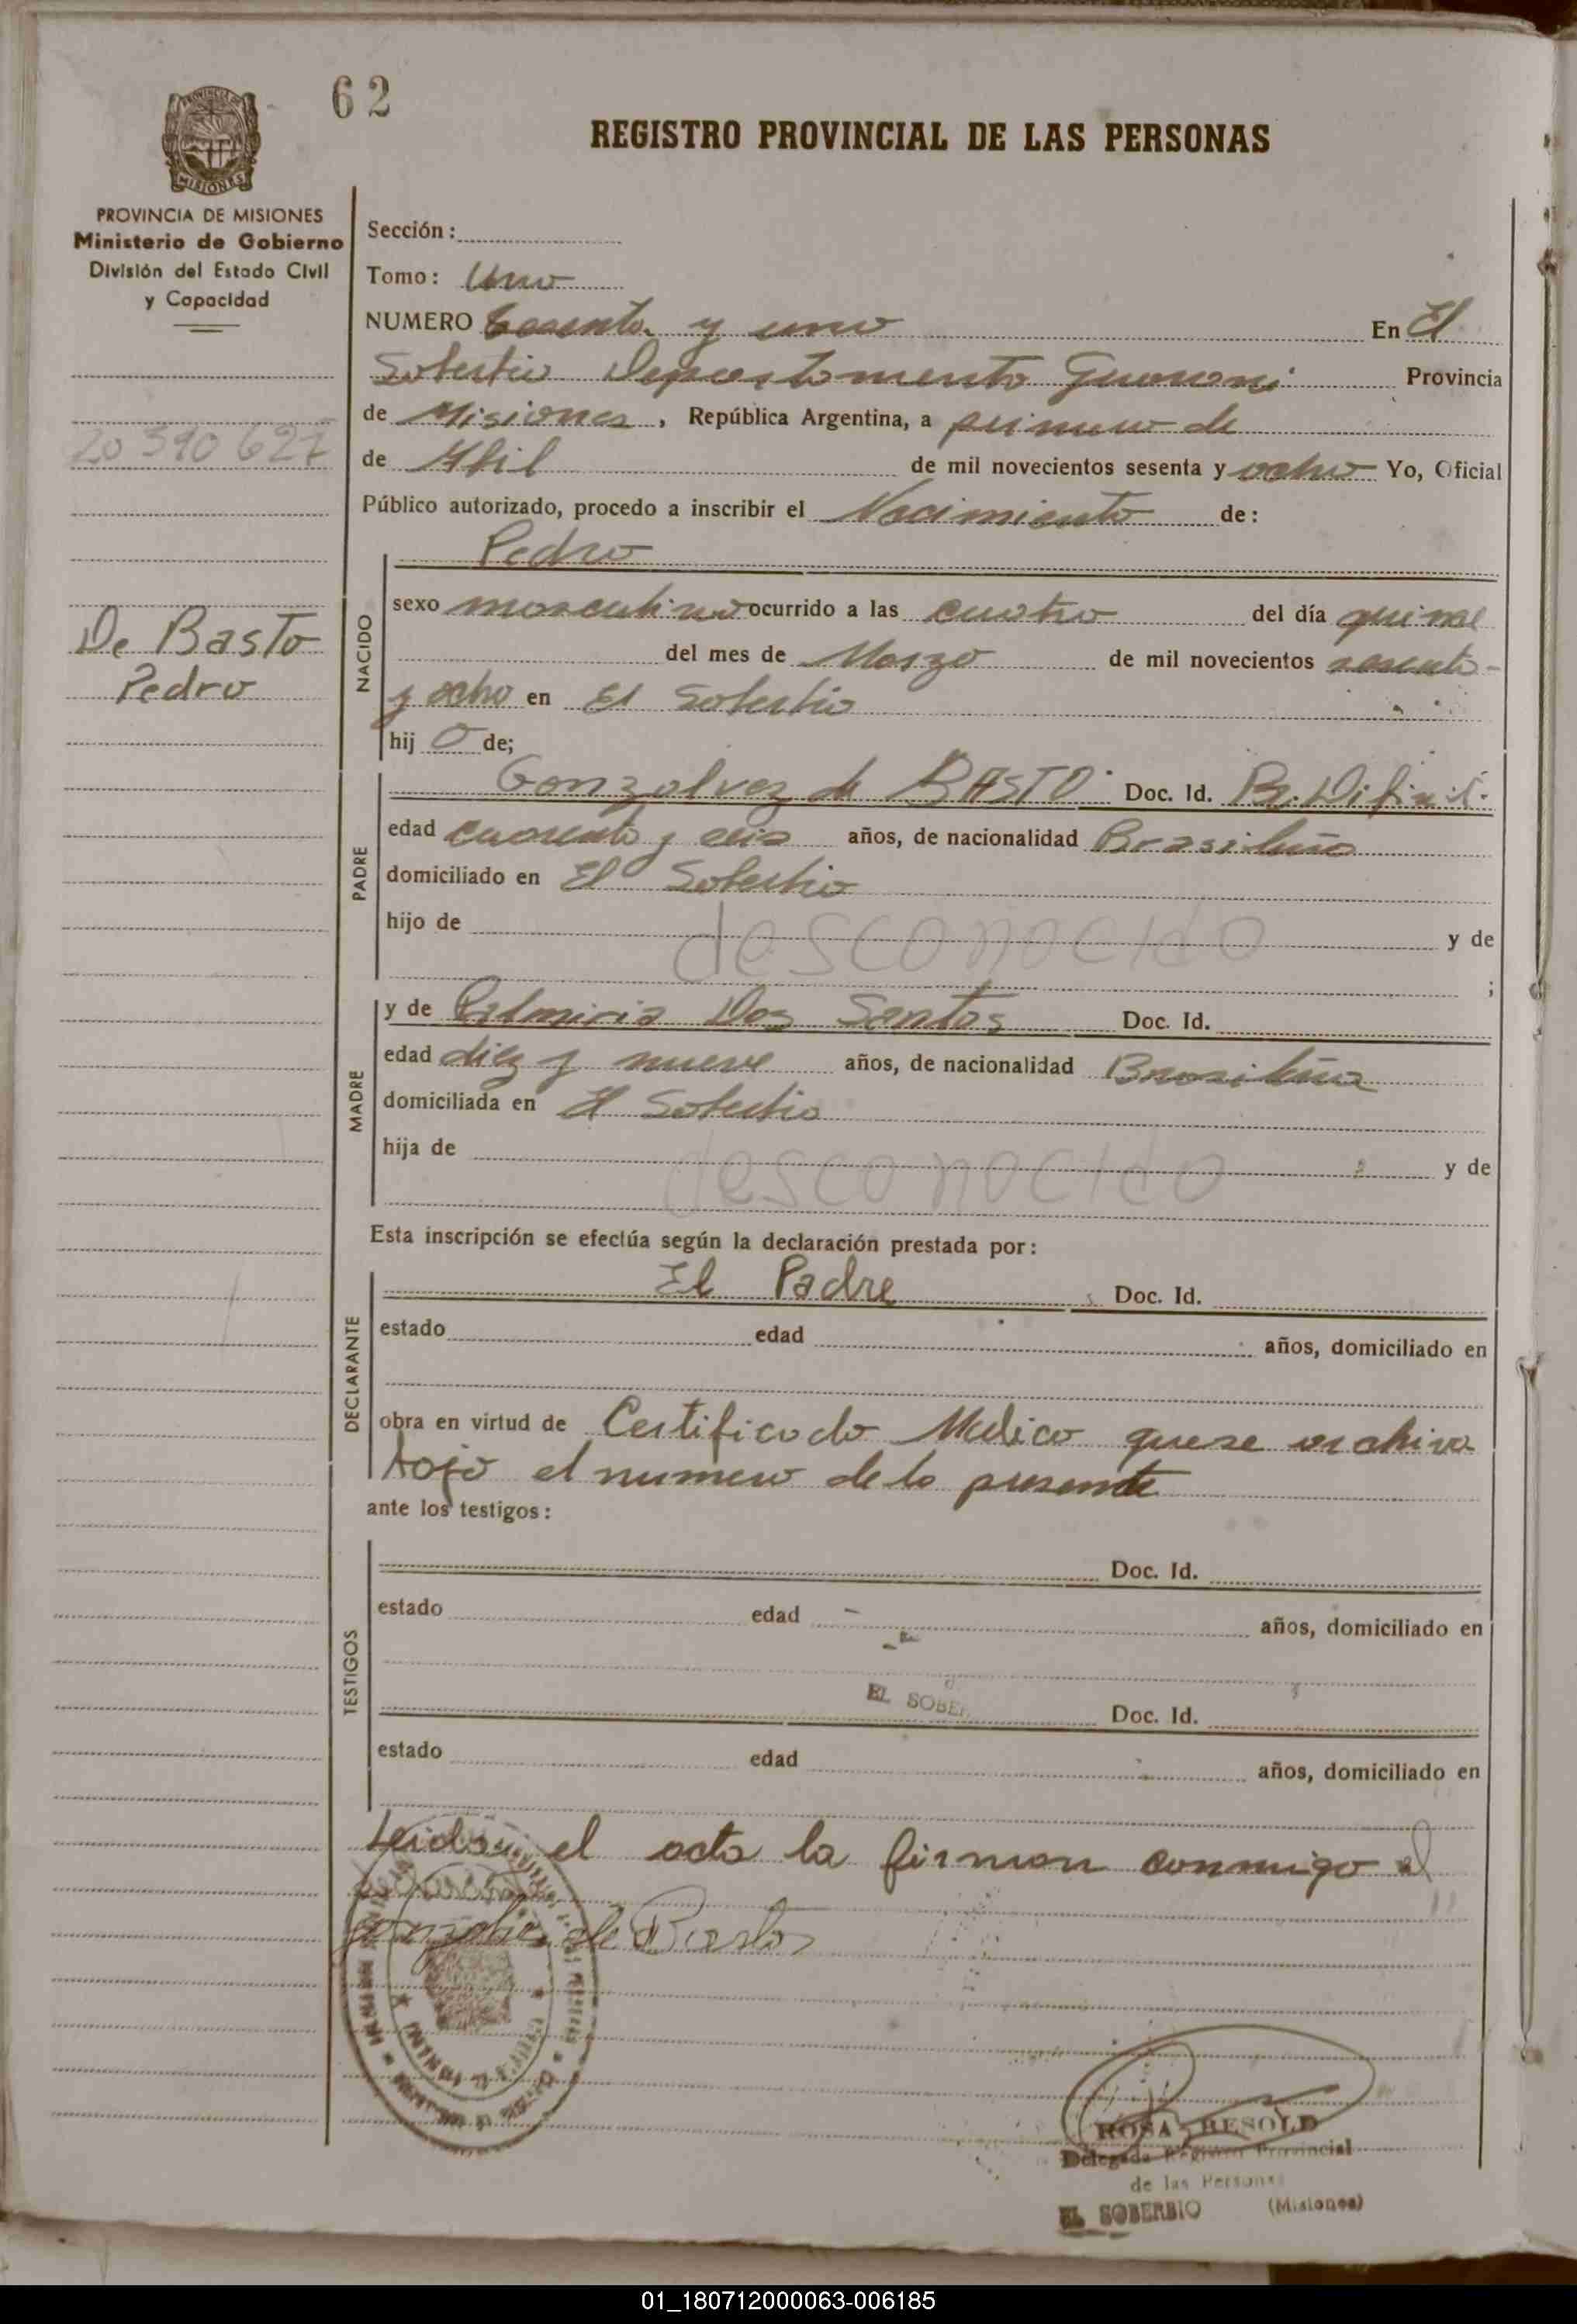 62
REGISTRO PROVINCIAL DE LAS PERSONAS
PROVINCIA DE MISIONES
Ministerio de Gobierno
División del Estado Civil
y Capacidad
20 390 627
De Basto
Pedro
Sección:
Tomo: Uno
NUMERO Sesenta y uno En El
Soberbio Departamento Guarani Provincia
de Misiones, República Argentina, a primero de
de Abril de mil novecientos sesenta y ocho Yo, Oficial
Público autorizado, procedo a inscribir el Nacimiento de:
Pedro
NACIDO
sexo masculino ocurrido a las cuatro del día quince
del mes de Marzo de mil novecientos sesenta
y ocho en El Soberbio
hijo de;
PADRE
Gonzalvez de BASTO Doc. Id.
edad cuarenta y seis años, de nacionalidad Brasileño
domiciliado en El Soberbio
hijo de desconocido y de
;
MADRE
y de Dos Santos Doc. Id.
edad diez y nueve años, de nacionalidad Brasileña
domiciliada en El Soberbio
hija de desconocido y de
Esta inscripción se efectúa según la declaración prestada por:
DECLARANTE
El Padre Doc. Id.
estado edad años, domiciliado en
obra en virtud de Certificado Medico que se archiva
bajo el numero de la presente
ante los testigos:
TESTIGOS
Doc. Id.
estado edad años, domiciliado en
EL SOBER
Doc. Id.
estado edad años, domiciliado en
Leida el acta la firman conmigo el
de Basto
ROSA RESOLD
Delegada Registro Provincial
de las Personas
EL SOBERBIO (Misiones)
01_180712000063-006185